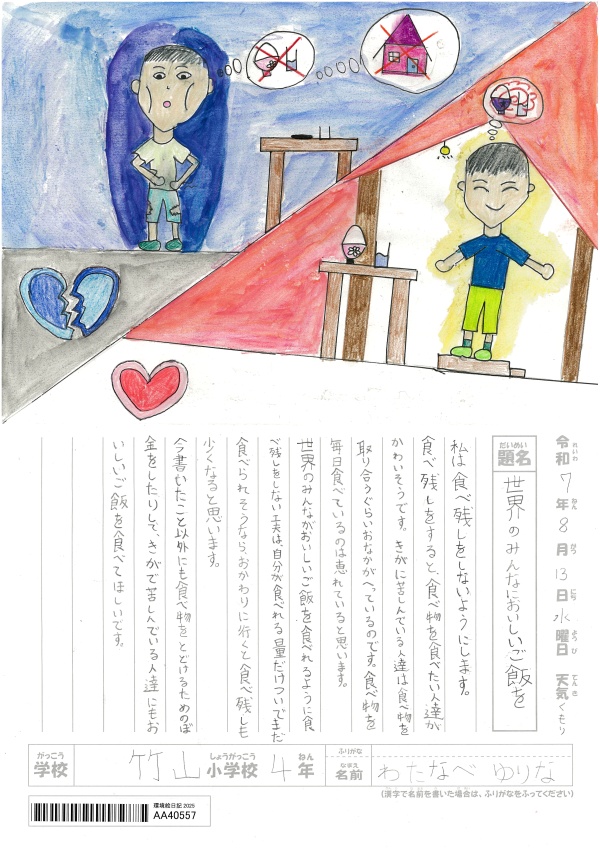 令和7年8月13日水曜日 天気くもり
れいわ ねん がつ にち ようび てんき
だいめい
題名
世界のみんなにおいしいご飯を
私は食べ残しをしないようにします。
食べ残しをすると、食べ物を食べたい人達が
かわいそうです。きがに苦しんでいる人達は食べ物を
取り合うぐらいおなかがへっているのです。食べ物を
毎日食べているのは恵れていると思います。
世界のみんながおいしいご飯を食べれるように食
べ残しをしない工夫は、自分が食べれる量だけついでまだ
食べられそうなら、おかわりに行くと食べ残しも
少くなると思います。
今書いたこと以外にも食べ物をとどけるためのぼ
金をしたりして、きがで苦しんでいる人達にもお
いしいご飯を食べてほしいです。
がっこう しょうがっこう ねん
学校 竹山小学校4年
ふりがな
なまえ
名前 わたなべ ゆりな
(漢字で名前を書いた場合は、ふりがなをふってください)
環境絵日記2025
AA40557